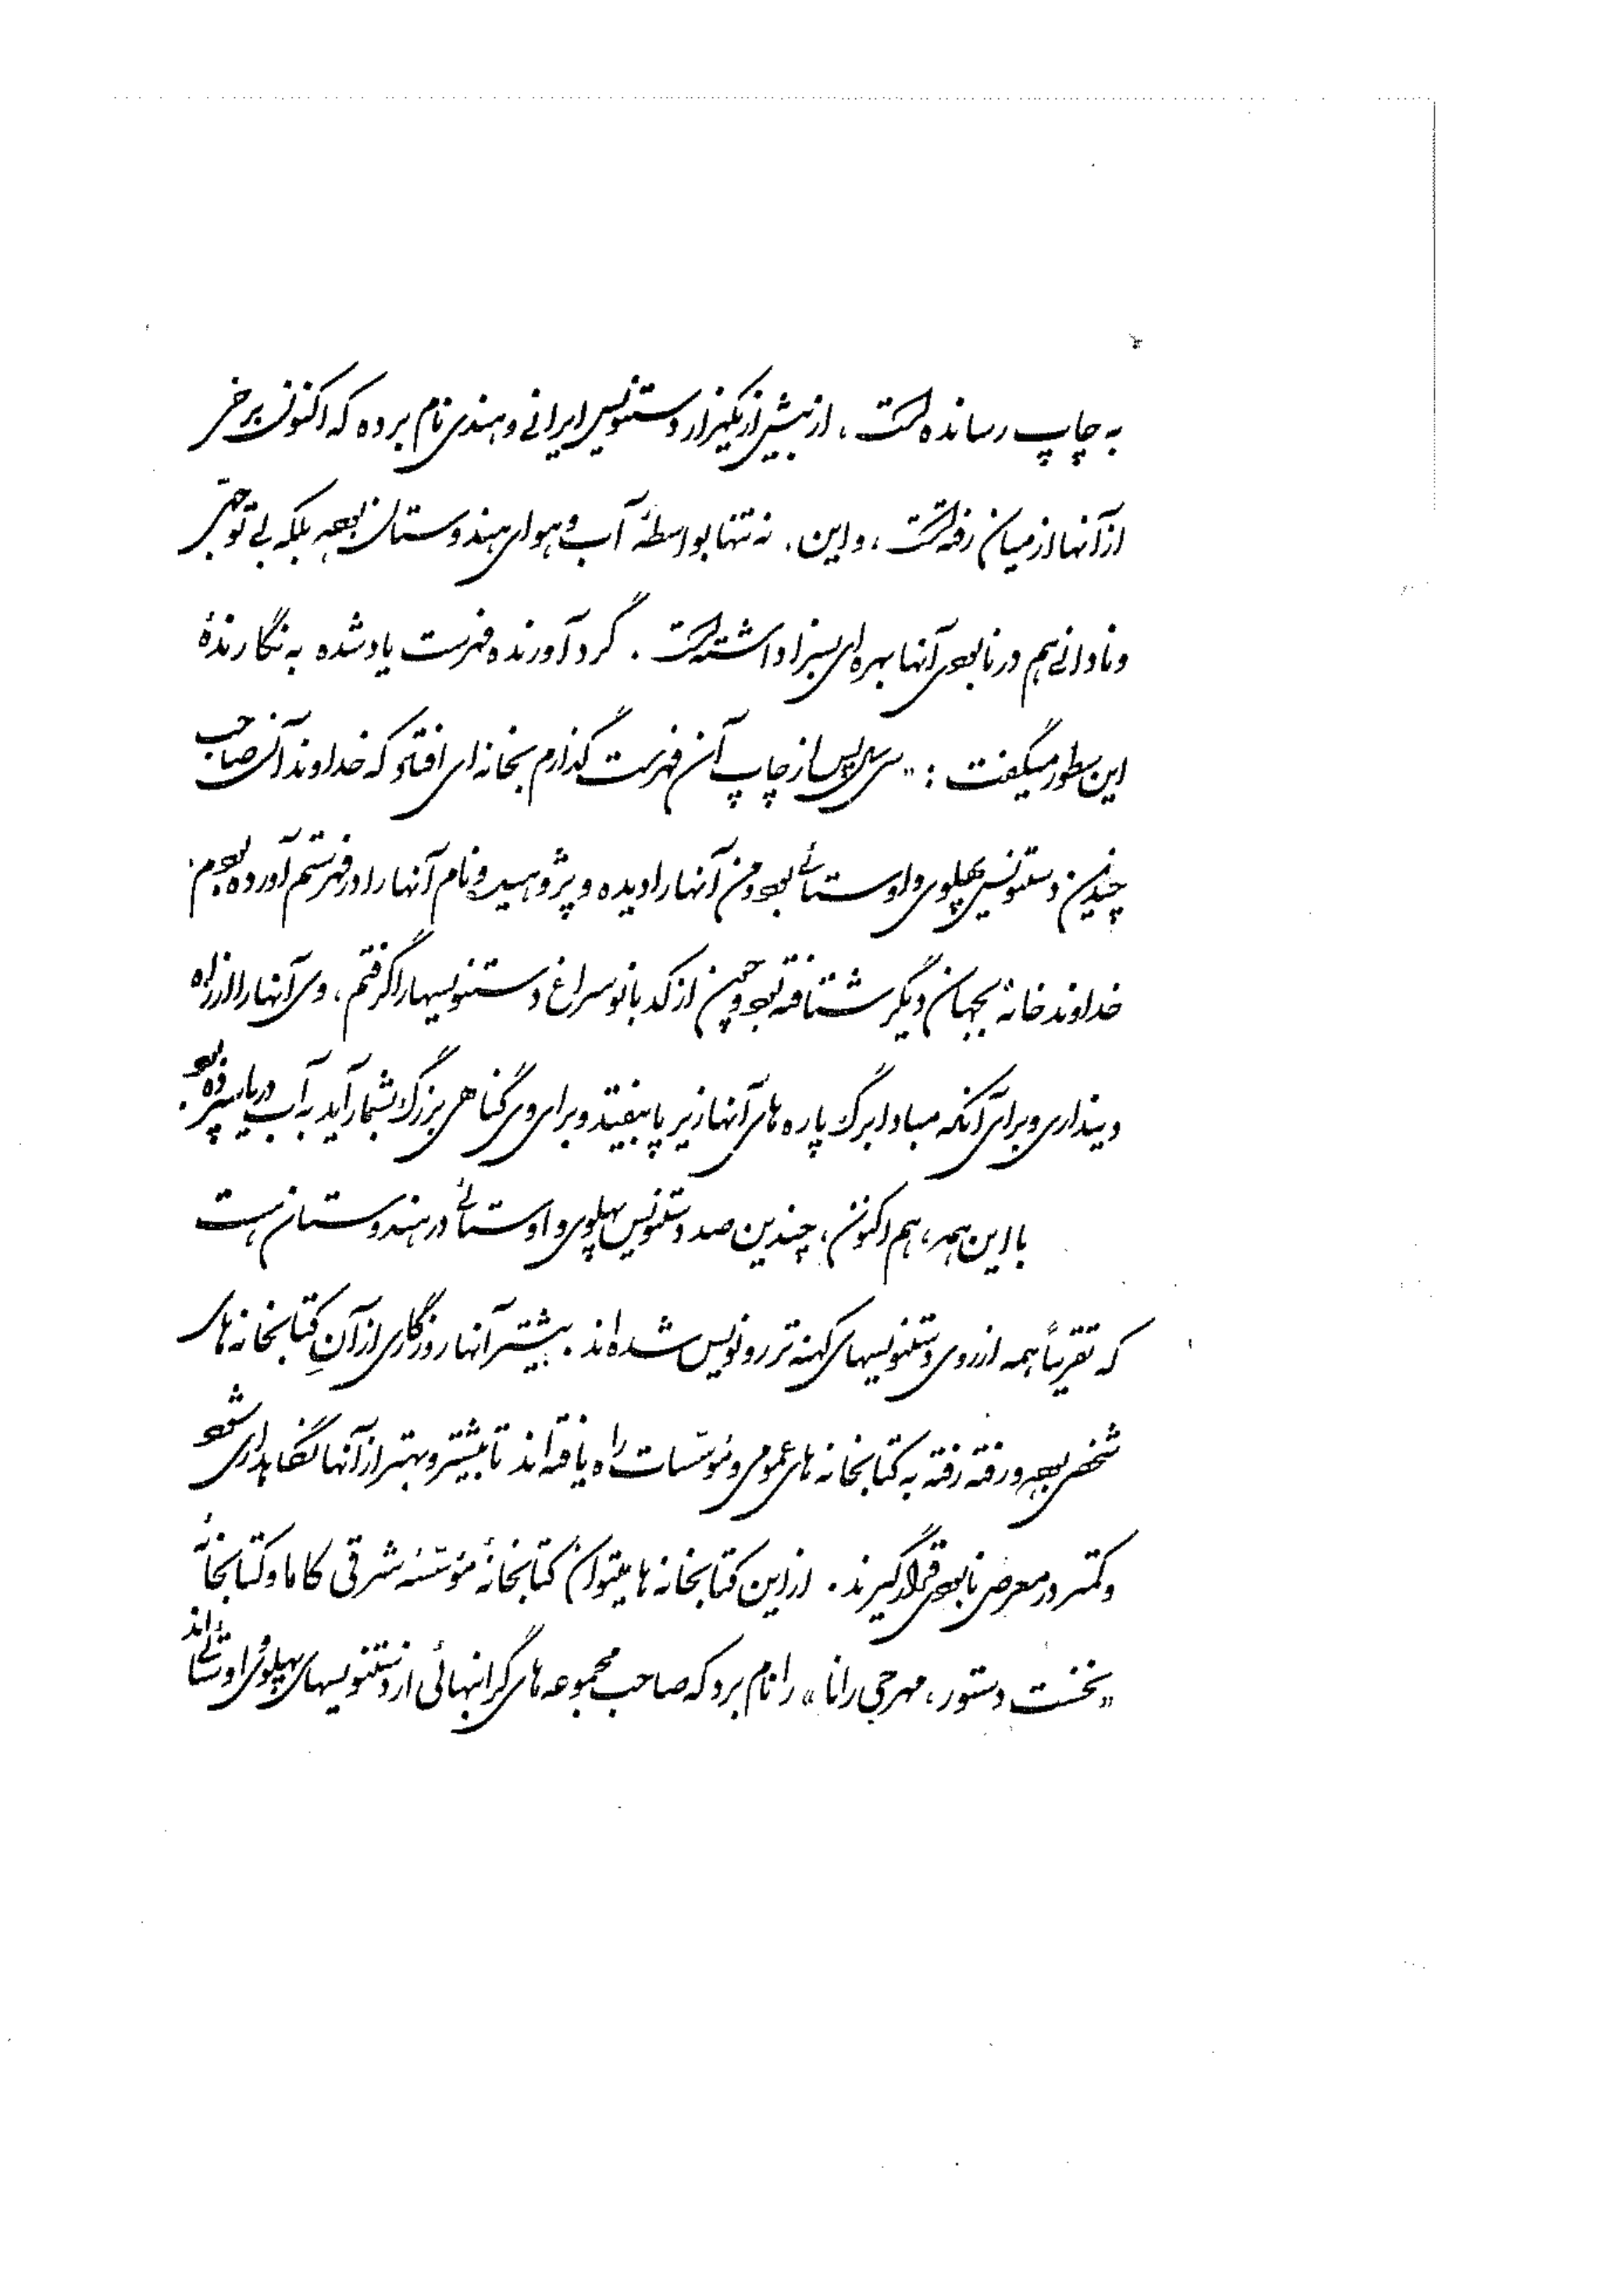 به چاپ رسانده است، از بیش از یکهزار دستنویس ایرانی و هندی نام برده که اکنون برخی
از آنها از میان رفته است، و این، نه تنها بواسطهٔ آب و هوای هندوستان بوده بلکه بی توجهی
و نادانی هم در نابودی آنها بهره‌ای بسزا داشته است. گردآورنده فهرست یاد شده به نگارندهٔ
این سطور میگفت: «سی سال پس از چاپ آن فهرست گذارم بخانه‌ای افتاد که خداوند آن صاحب
چندین دستنویس پهلوی و اوستائی بود و من آنها را دیده و پژوهیده و نام آنها را در فهرستم آورده بودم.
خداوند خانه بجهان دیگر شتافته بود و چون از کدبانو سراغ دستنویسها را گرفتم، وی آنها را از راه
دینداری و برای آنکه مبادا برگ پاره‌های آنها زیر پا بیفتد و برای وی گناهی بزرگ بشمار آید به آب دریا سپرده بود.
با این همه، هم اکنون، چندین صد دستنویس پهلوی و اوستائی در هندوستان هست
که تقریباً همه از روی دستنویسهای کهنه تر رونویس شده‌اند. بیشتر آنها روزگاری از آنِ کتابخانه‌های
شخصی بوده و رفته رفته به کتابخانه‌های عمومی و مؤسّسات راه یافته‌اند تا بیشتر و بهتر از آنها نگاهداری شود
و کمتر در معرض نابودی قرار گیرند. از این کتابخانه‌ها میتوان کتابخانهٔ مؤسّسهٔ شرقی کاما و کتابخانهٔ
«نخست دستور، مهرجی رانا» را نام برد که صاحب مجموعه‌های گرانبهائی از دستنویسهای پهلوی و اوستائی‌اند